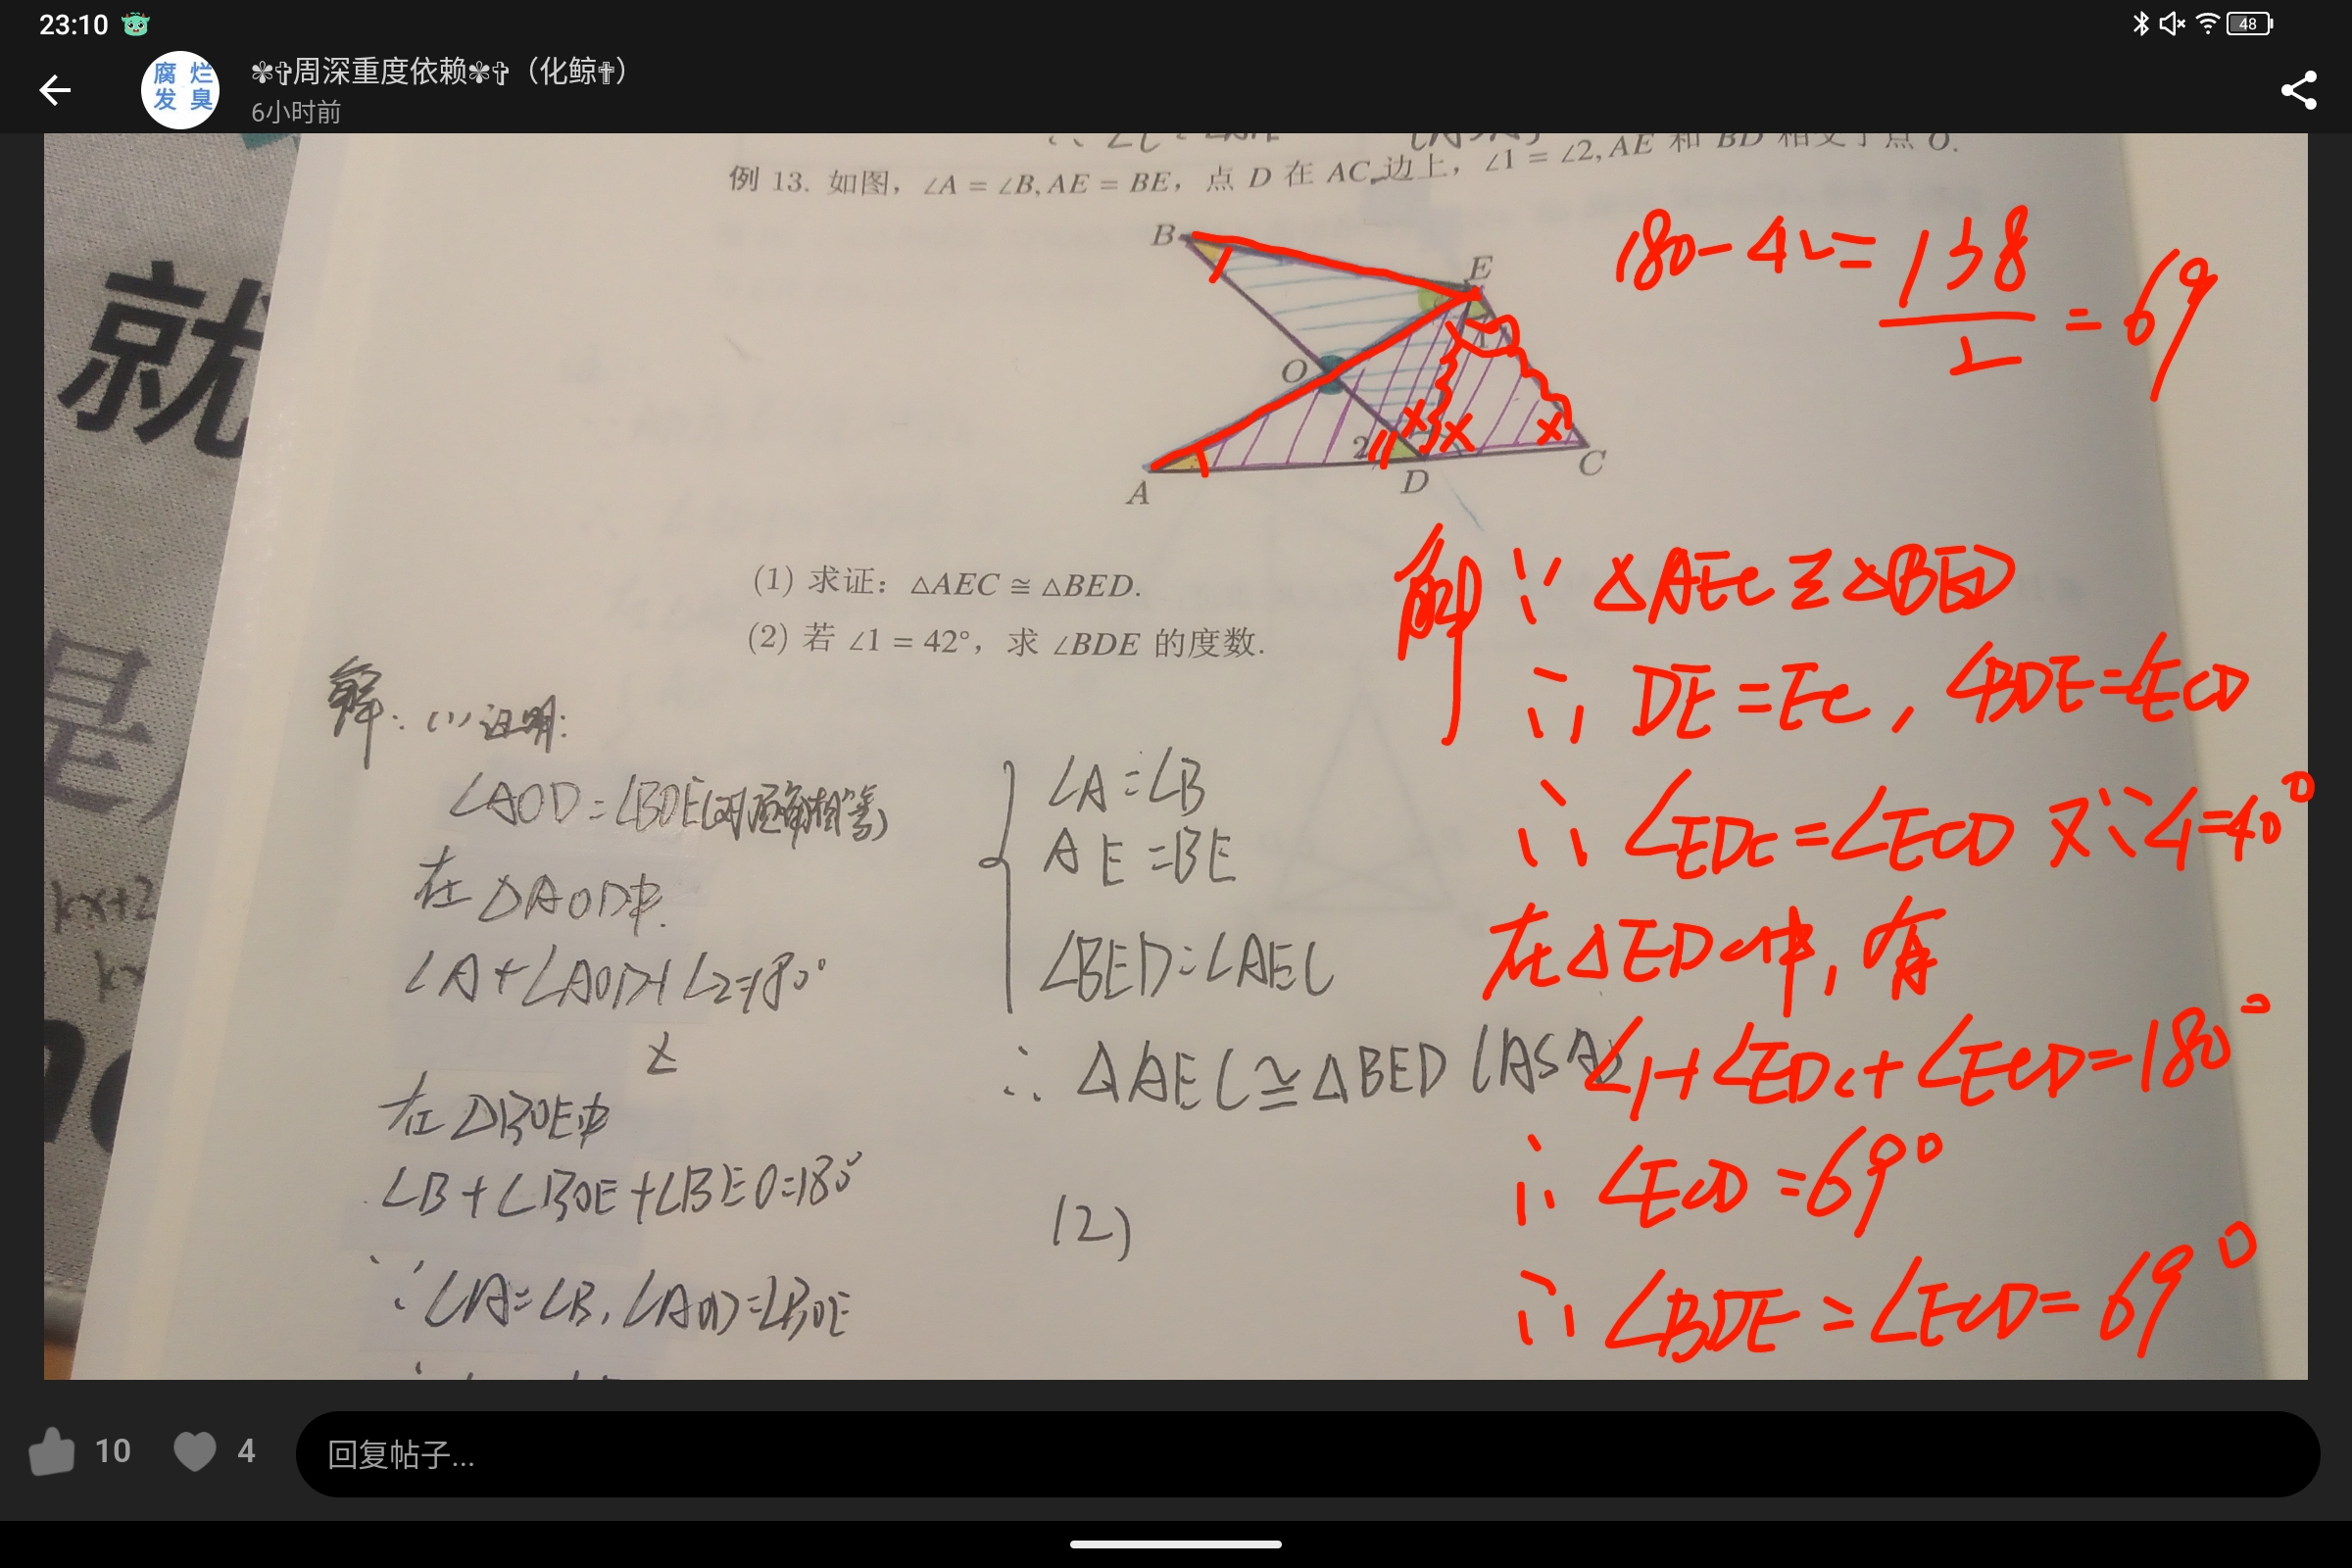 23:10
48
腐 烂
发 臭
✾✞周深重度依赖✾✞（化鲸✟）
6小时前
例 13. 如图，∠A = ∠B, AE = BE，点 D 在 AC 边上，∠1 = ∠2, AE 和 BD 相交于点 O.
B
E
1
O
2
A
D
C
180-42= 138/2 = 69
(1) 求证：△AEC ≅ △BED.
(2) 若 ∠1 = 42°，求 ∠BDE 的度数.
就
是
kx+2
解：(1) 证明:
∠AOD=∠BOE(对顶角相等)
在△AOD中.
∠A+∠AOD+∠2=180°
在△BOE中
∠B+∠BOE+∠BEO=180°
∵∠A=∠B, ∠AOD=∠BOE
∠A=∠B
AE=BE
∠BED=∠AEC
∴ △AEC≅△BED (ASA)
(2)
解 ∵ △AEC≌△BED
∴ DE=EC, ∠BDE=∠ECD
∴ ∠EDC=∠ECD 又∵∠1=40°
在△EDC中,有
∠1+∠EDC+∠ECD=180°
∴ ∠ECD=69°
∴ ∠BDE=∠ECD=69°
10
4
回复帖子...